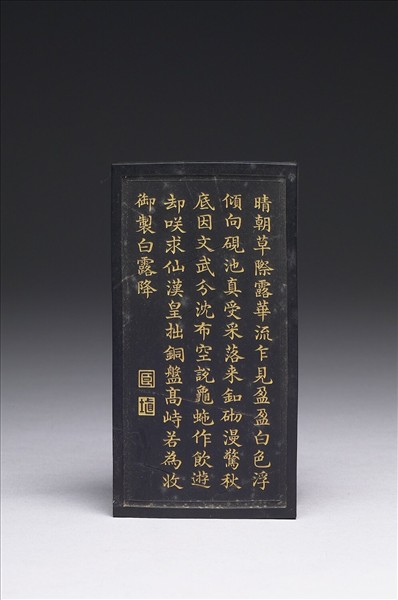 晴朝草際露華流乍見盈盈白色浮
傾向硯池真受采落来釦砌漫驚秋
底因文武分沈布空說龜虵作飲遊
却咲求仙漢皇拙銅盤髙峙若為收
御製白露降
臣